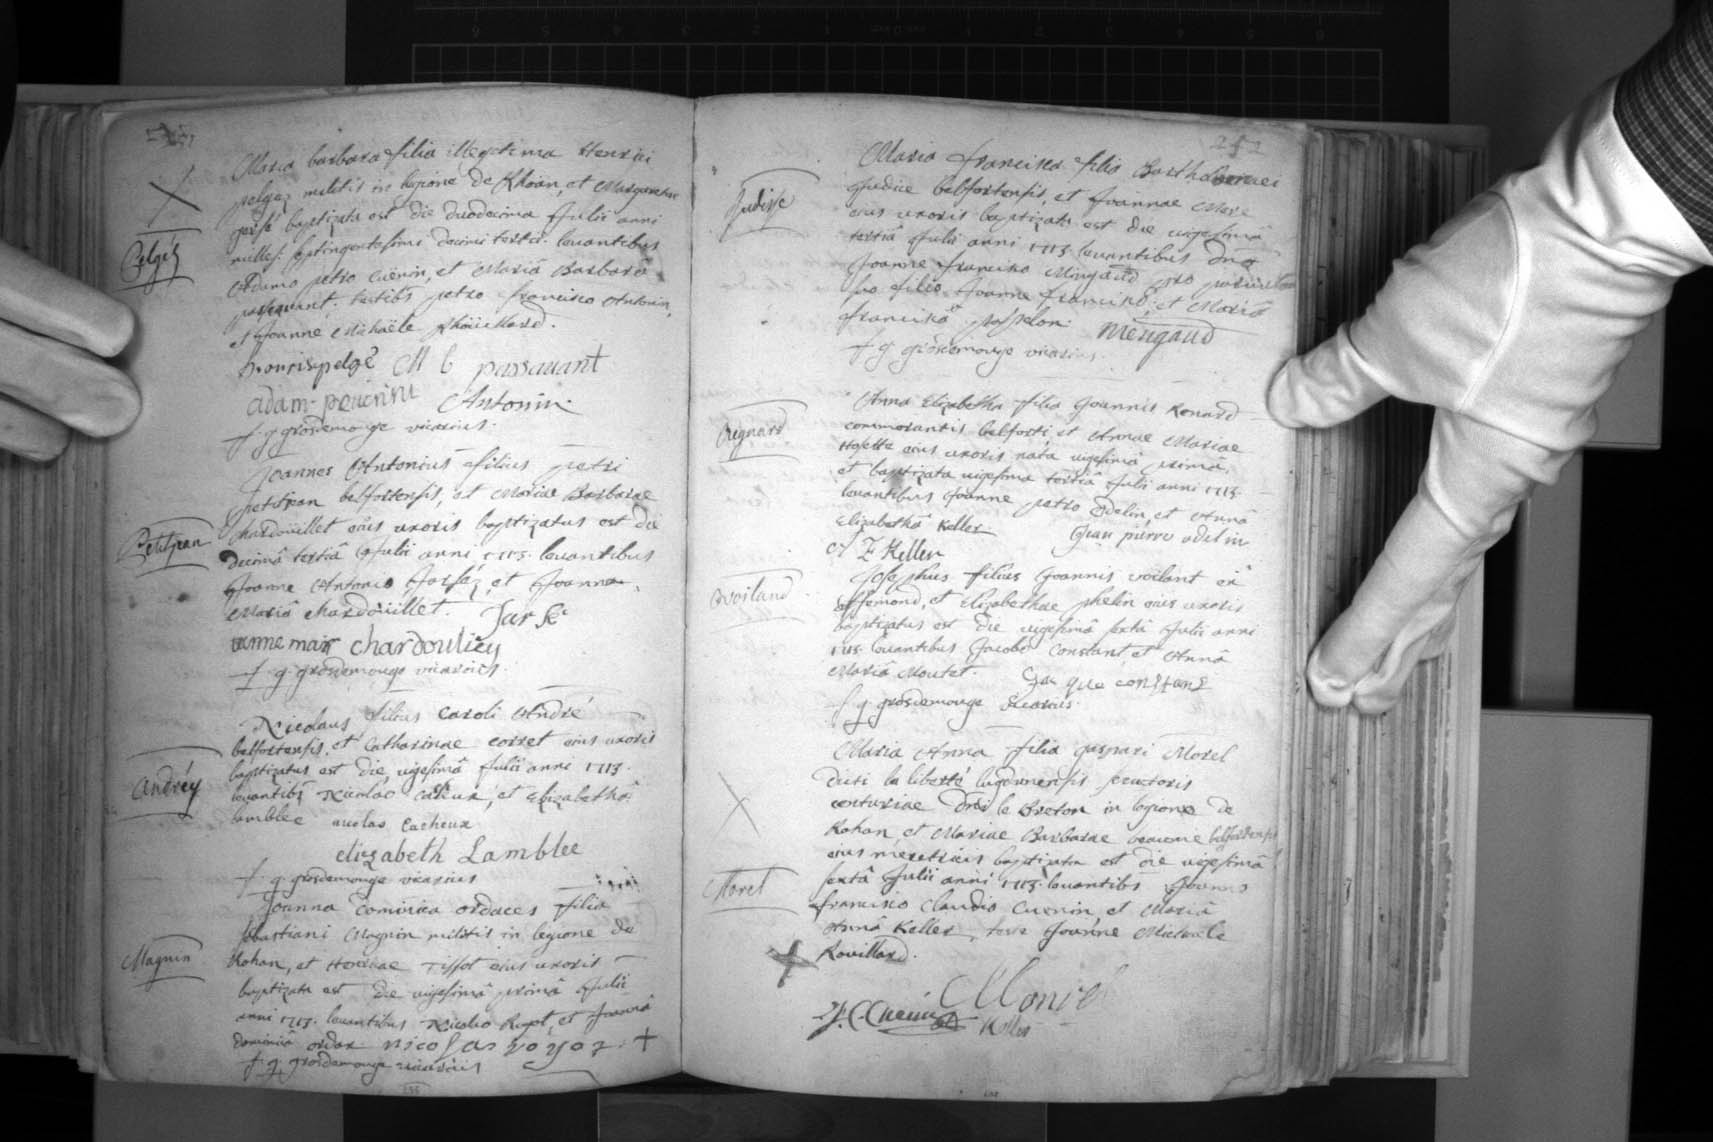 Maria barbara filia illegetima Henrici
pelgez militis in legione de Rhoan, et Margaretae
baptizata est die duodecima Julii anni
milles: septingentesimi decimi tertii. levantibus
Adamo petro Cuenin, et Mariâ Barbarâ
passavant, testibs petro francisco Antonin,
et Joanne Michaële Rhouillard.
Pelgéz
M b passavant
adam
Antonin
f. g. grosdemouge vicarius.
Joannes Antonius filius petri
petitjean belfortensis, et Mariae Barbarae
chardouillet eius uxoris baptizatus est die
decimâ tertiâ Julii anni 1713. levantibus
Joanne Antonio et Joanna
Mariâ chardouillet.
Petitjean
chardouliey
f. g. grosdemouge vicarius.
Nicolaus filius Caroli André
belfortensis, et Catharinae corret eius uxoris
baptizatus est die vigesimâ Julii anni 1713.
levantibs Nicolao et Elizabethâ
lamblee
Andrey
nicolas Cacheux
elizabeth Lamblee
f. g. grosdemouge vicarius
Joanna filia
Sebastiani Magnin militis in legione de
Rohan, et Tissot eius uxoris
baptizata est die vigesimâ primâ Julii
anni 1713. levantibus Nicolao et Joannâ
Magnin
nicolas +
f. g. grosdemouge vicarius
252
Maria francisca filia Bartholomaei
Judice belfortensis, et Joannae
eius uxoris baptizata est die vigesimâ
tertiâ Julii anni 1713 levantibus dno
Joanne francisco Mingaud pro
suo filio Joanne francisco, et Mariâ
franciscâ
Judisse
mengaud
f. g. grosdemouge vicarius.
Anna Elizabetha filia Joannis Renard
commorantis belforti et Annae Mariae
eius uxoris nata vigesimâ primâ,
et baptizata vigesima tertiâ Julii anni 1713.
levantibus Joanne petro Odelin, et Annâ
Elizabethâ Keller.
Regnard
Jean pierre odelin
A E Keller
Josephus filius Joannis voilant ex
offemond, et Elizabethae phelin eius uxoris
baptizatus est die vigesimâ sextâ Julii anni
1713. levantibus Jacobo Constant, et Annâ
Mariâ Moutet.
Voiland
Ja que constant
f. g. grosdemouge vicarius.
Maria Anna filia gaspari Morel
dicti la liberté lugdunensis
centuriae dni le Breton in legione de
Rohan, et Mariae Barbarae belfortensis
eius meretricis baptizata est die vigesimâ
sextâ Julii anni 1713. levantibs Joanne
francisco Claudio Cuenin, et Mariâ
Annâ Keller, teste Joanne Michaele
Rouillard.
Morel
J. C. Cuenin
Keller